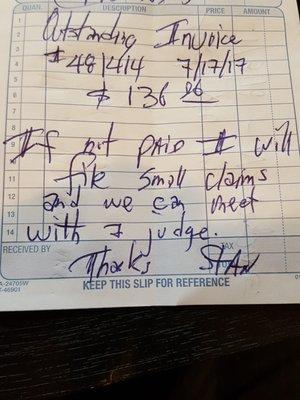 QUAN. DESCRIPTION PRICE AMOUNT
1
2 Outstanding Invoice
3
4 # 481414 7/17/17
5
6 $ 136.00
7
8
9 If not paid I will
11 file small claims
12
13 and we can meet
14 with a judge.
RECEIVED BY TAX
Thanks STAN
A-24705W
T-46901
KEEP THIS SLIP FOR REFERENCE